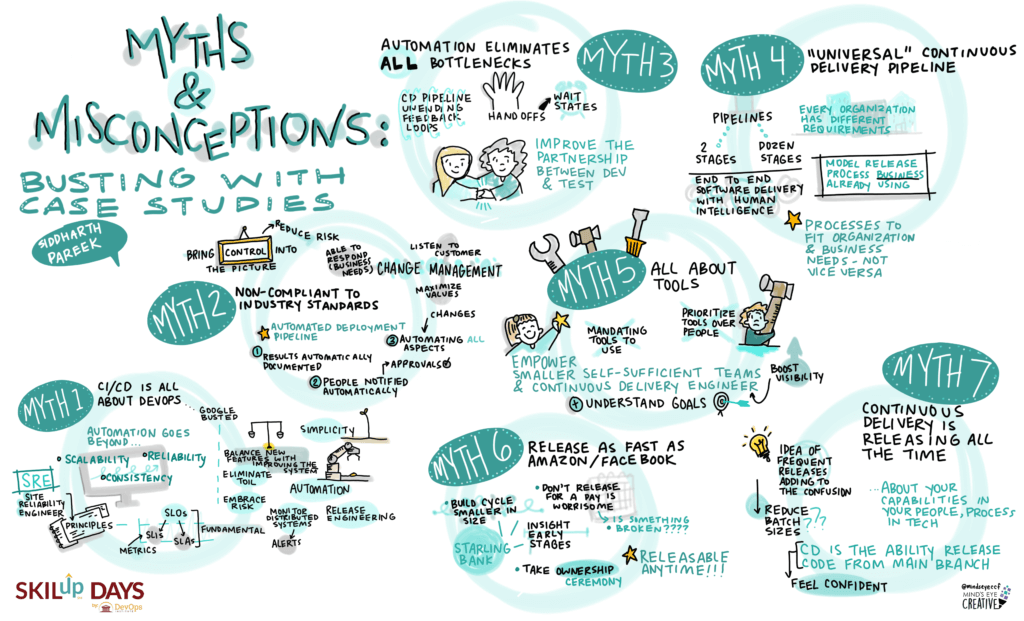 MYTHS
&
MISCONCEPTIONS:
BUSTING WITH
CASE STUDIES
SIDDHARTH
PAREEK
MYTH 1
CI/CD IS ALL
ABOUT DEVOPS...
AUTOMATION GOES
BEYOND...
SCALABILITY
RELIABILITY
CONSISTENCY
SRE
SITE
RELIABILITY
ENGINEER
PRINCIPLES
SLOs
SLIs
SLAs
METRICS
FUNDAMENTAL
GOOGLE
BUSTED
BALANCE NEW
FEATURES WITH
IMPROVING THE
SYSTEM
ELIMINATE
TOIL
EMBRACE
RISK
MONITOR
DISTRIBUTED
SYSTEMS
ALERTS
SIMPLICITY
AUTOMATION
RELEASE
ENGINEERING
MYTH 2
NON-COMPLIANT TO
INDUSTRY STANDARDS
BRING CONTROL INTO
THE PICTURE
REDUCE RISK
ABLE TO
RESPOND
(BUSINESS
NEEDS)
LISTEN TO
CUSTOMER
CHANGE MANAGEMENT
MAXIMIZE
VALUES
CHANGES
AUTOMATED DEPLOYMENT
PIPELINE
1 RESULTS AUTOMATICALLY
DOCUMENTED
2 PEOPLE NOTIFIED
AUTOMATICALLY
3 AUTOMATING ALL
ASPECTS
APPROVALS
MYTH 3
AUTOMATION ELIMINATES
ALL BOTTLENECKS
CD PIPELINE
UNENDING
FEEDBACK
LOOPS
HANDOFFS
WAIT
STATES
IMPROVE THE
PARTNERSHIP
BETWEEN DEV
& TEST
MYTH 4
"UNIVERSAL" CONTINUOUS
DELIVERY PIPELINE
PIPELINES
2
STAGES
DOZEN
STAGES
END TO END
SOFTWARE DELIVERY
WITH HUMAN
INTELLIGENCE
EVERY ORGANIZATION
HAS DIFFERENT
REQUIREMENTS
MODEL RELEASE
PROCESS BUSINESS
ALREADY USING
PROCESSES TO
FIT ORGANIZATION
& BUSINESS
NEEDS - NOT
VICE VERSA
MYTH 5
ALL ABOUT
TOOLS
MANDATING
TOOLS TO
USE
PRIORITIZE
TOOLS OVER
PEOPLE
EMPOWER
SMALLER SELF-SUFFICIENT TEAMS
& CONTINUOUS DELIVERY ENGINEER
+ UNDERSTAND GOALS
BOOST
VISIBILITY
MYTH 6
RELEASE AS FAST AS
AMAZON/FACEBOOK
BUILD CYCLE
SMALLER IN
SIZE
DON'T RELEASE
FOR A DAY IS
WORRISOME
IS SOMETHING
BROKEN????
INSIGHT
EARLY
STAGES
STARLING
BANK
TAKE OWNERSHIP
CEREMONY
RELEASABLE
ANYTIME!!!
MYTH 7
CONTINUOUS
DELIVERY IS
RELEASING ALL
THE TIME
IDEA OF
FREQUENT
RELEASES
ADDING TO
THE CONFUSION
REDUCE
BATCH
SIZES
???
...ABOUT YOUR
CAPABILITIES IN
YOUR PEOPLE, PROCESS
IN TECH
CD IS THE ABILITY RELEASE
CODE FROM MAIN BRANCH
FEEL CONFIDENT
SKILup DAYS
by DevOps
@mindseyeccf
MIND'S EYE
CREATIVE